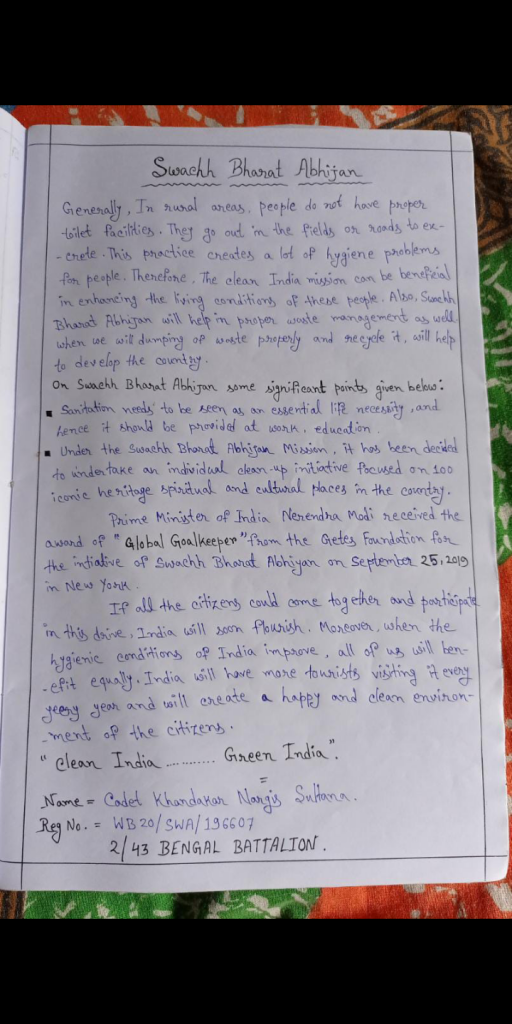 Swachh Bharat Abhijan
Generally, In rural areas, people do not have proper
toilet facilities. They go out in the fields or roads to ex-
-crete. This practice creates a lot of hygiene problems
for people. Therefore, The clean India mission can be beneficial
in enhancing the living conditions of these people. Also, Swachh
Bharat Abhijan will help in proper waste management as well
when we will dumping of waste properly and recycle it, will help
to develop the country.
On Swachh Bharat Abhijan some significant points given below:
▪ Sanitation needs to be seen as an essential life necessity, and
hence it should be provided at work, education.
▪ Under the Swachh Bharat Abhijan Mission, it has been decided
to undertake an individual clean-up initiative focused on 100
iconic heritage spiritual and cultural places in the country.
Prime Minister of India Nerendra Modi received the
award of "Global Goalkeeper" from the Getes Foundation for
the intiative of Swachh Bharat Abhiyan on September 25, 2019
in New York.
If all the citizens could come together and participate
in this drive, India will soon flourish. Moreover, when the
hygienic conditions of India improve, all of us will ben-
-efit equally. India will have more tourists visiting it every
year and will create a happy and clean environ-
-ment of the citizens.
"Clean India ............ Green India".
=
Name = Cadet Khandakar Nargis Sultana.
Reg No. = WB20/SWA/196607
2/43 BENGAL BATTALION.